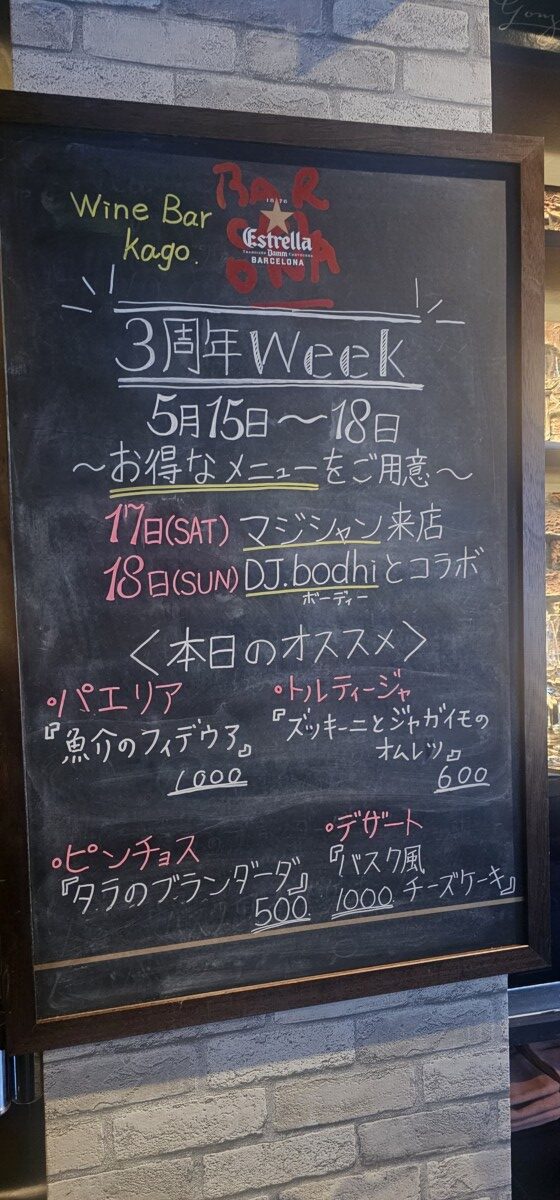 Wine Bar
kago.
BAR
1876
Estrella
Damm
BARCELONA
3周年Week
5月15日〜18日
〜お得なメニューをご用意〜
17日(SAT) マジシャン来店
18日(SUN) DJ.bodhiとコラボ
ボーディー
〈本日のオススメ〉
・パエリア
『魚介のフィデウア』
1000
・トルティージャ
『ズッキーニとジャガイモの
オムレツ』
600
・ピンチョス
『タラのブランダーダ』
500
・デザート
『バスク風
チーズケーキ』
1000